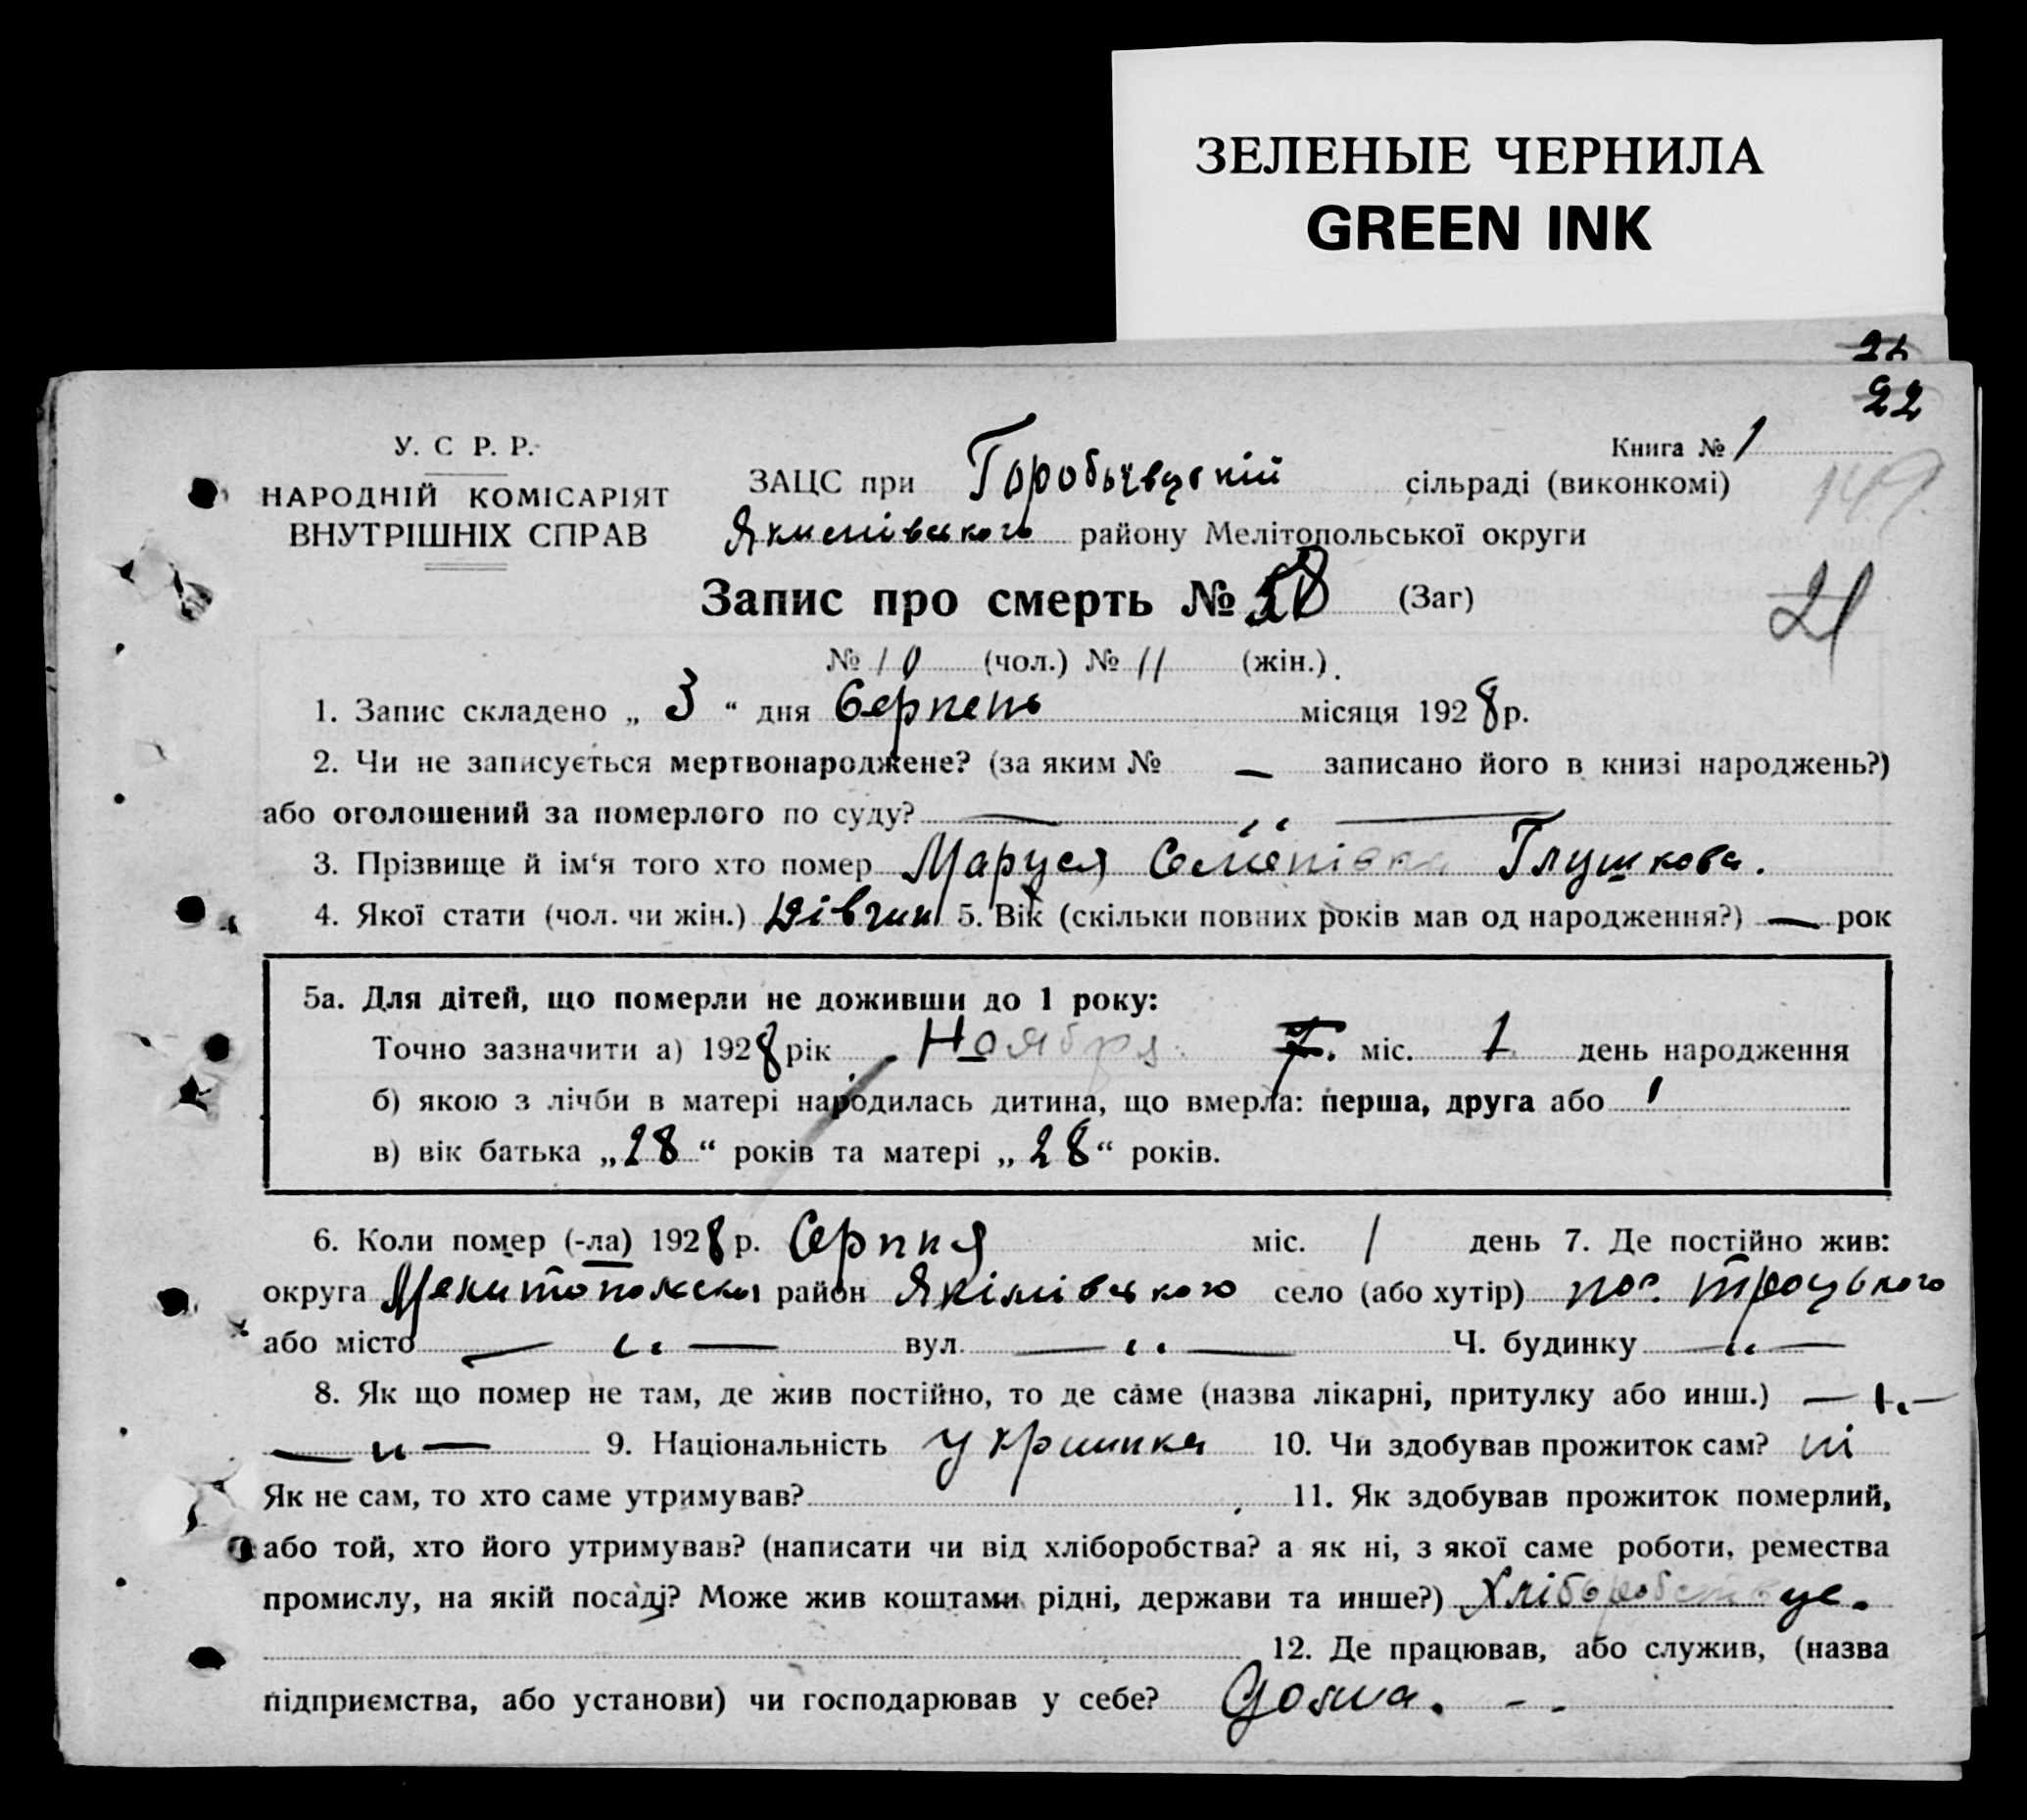 ЗЕЛЕНЫЕ ЧЕРНИЛА
GREEN INK
22
У. С Р. Р.
НАРОДНІЙ КОМІСАРІЯТ
ВНУТРІШНІХ СПРАВ
Книга № 1
149
ЗАЦС при сільраді (виконкомі)
району Мелітопольської округи
21
Запис про смерть № 58 (Заг)
№ 10 (чол.) № 11 (жін.).
1. Запис складено „ 3 “ дня Серпень місяця 1928 р.
2. Чи не записується мертвонароджене? (за яким № — записано його в книзі народжень?)
або оголошений за померлого по суду? — „ —
3. Прізвище й ім‘я того хто помер Маруся Семенівна Глушкова.
4. Якої стати (чол. чи жін.) Дівчин 5. Вік (скільки повних років мав од народження?) — рок
5а. Для дітей, що померли не доживши до 1 року:
Точно зазначити а) 1928 рік Ноября 7. міс. 1 день народження
б) якою з лічби в матері народилась дитина, що вмерла: перша, друга або 1
в) вік батька „28“ років та матері „28“ років.
6. Коли помер (-ла) 1928 р. Серпня міс. 1 день 7. Де постійно жив:
округа район Якімівського село (або хутір) пос. Троцького
або місто — „ — вул. — „ — Ч. будинку — „ —
8. Як що помер не там, де жив постійно, то де саме (назва лікарні, притулку або инш.) — „ —
— „ — 9. Національність 10. Чи здобував прожиток сам? ні
Як не сам, то хто саме утримував? 11. Як здобував прожиток померлий,
або той, хто його утримував? (написати чи від хліборобства? а як ні, з якої саме роботи, ремества
промислу, на якій посаді? Може жив коштами рідні, держави та инше?)
12. Де працював, або служив, (назва
підприємства, або установи) чи господарював у себе? Дома. - -